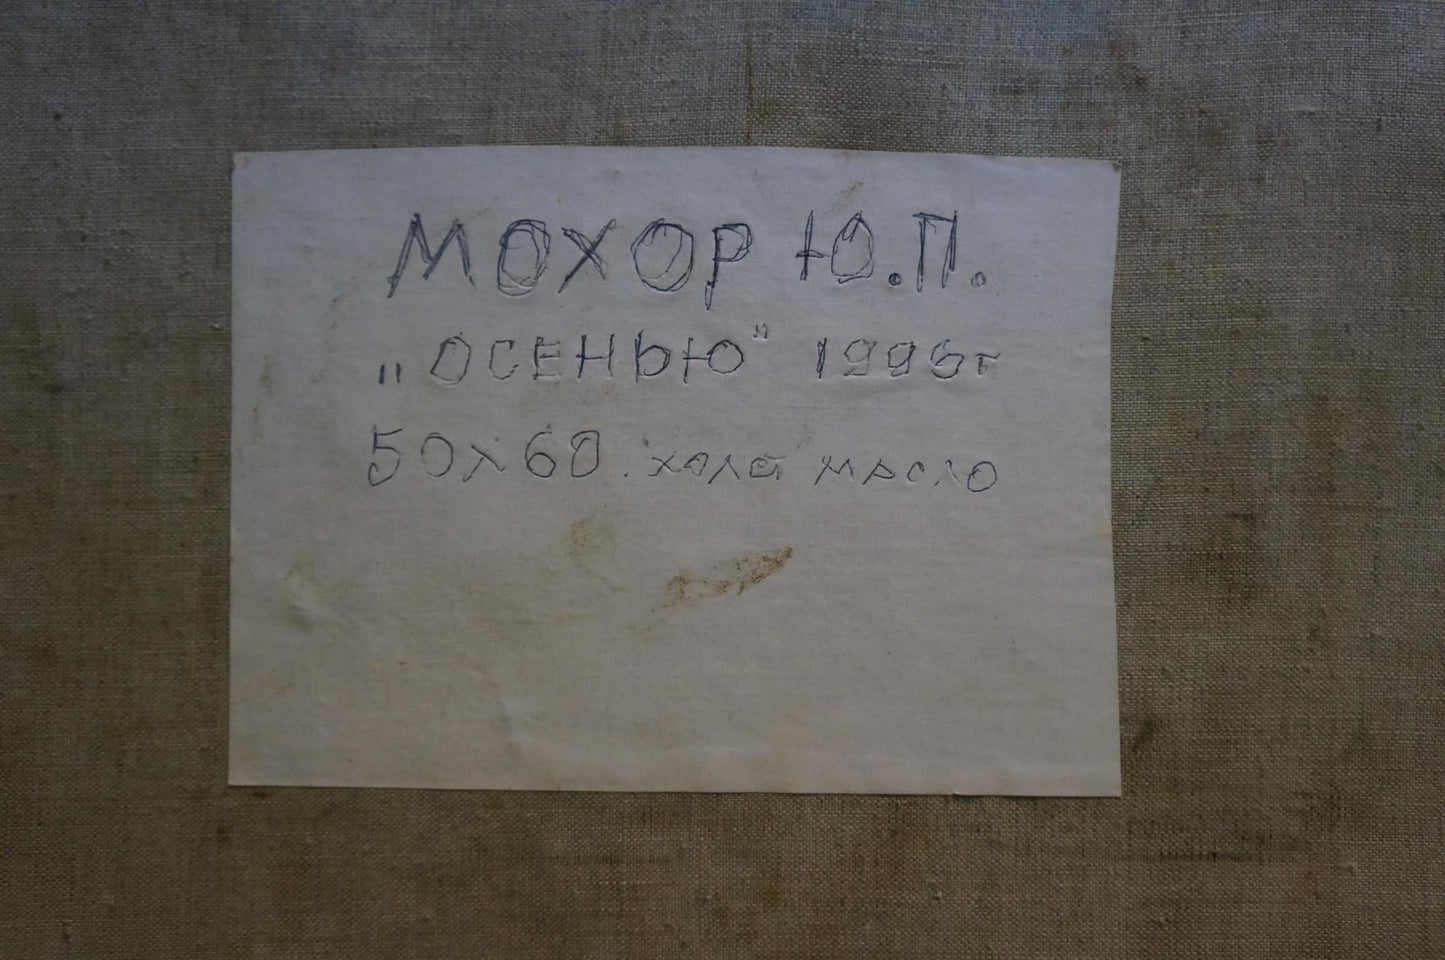 МОХОР Ю.П.
„ОСЕНЬЮ" 1996г
50х60. холст масло